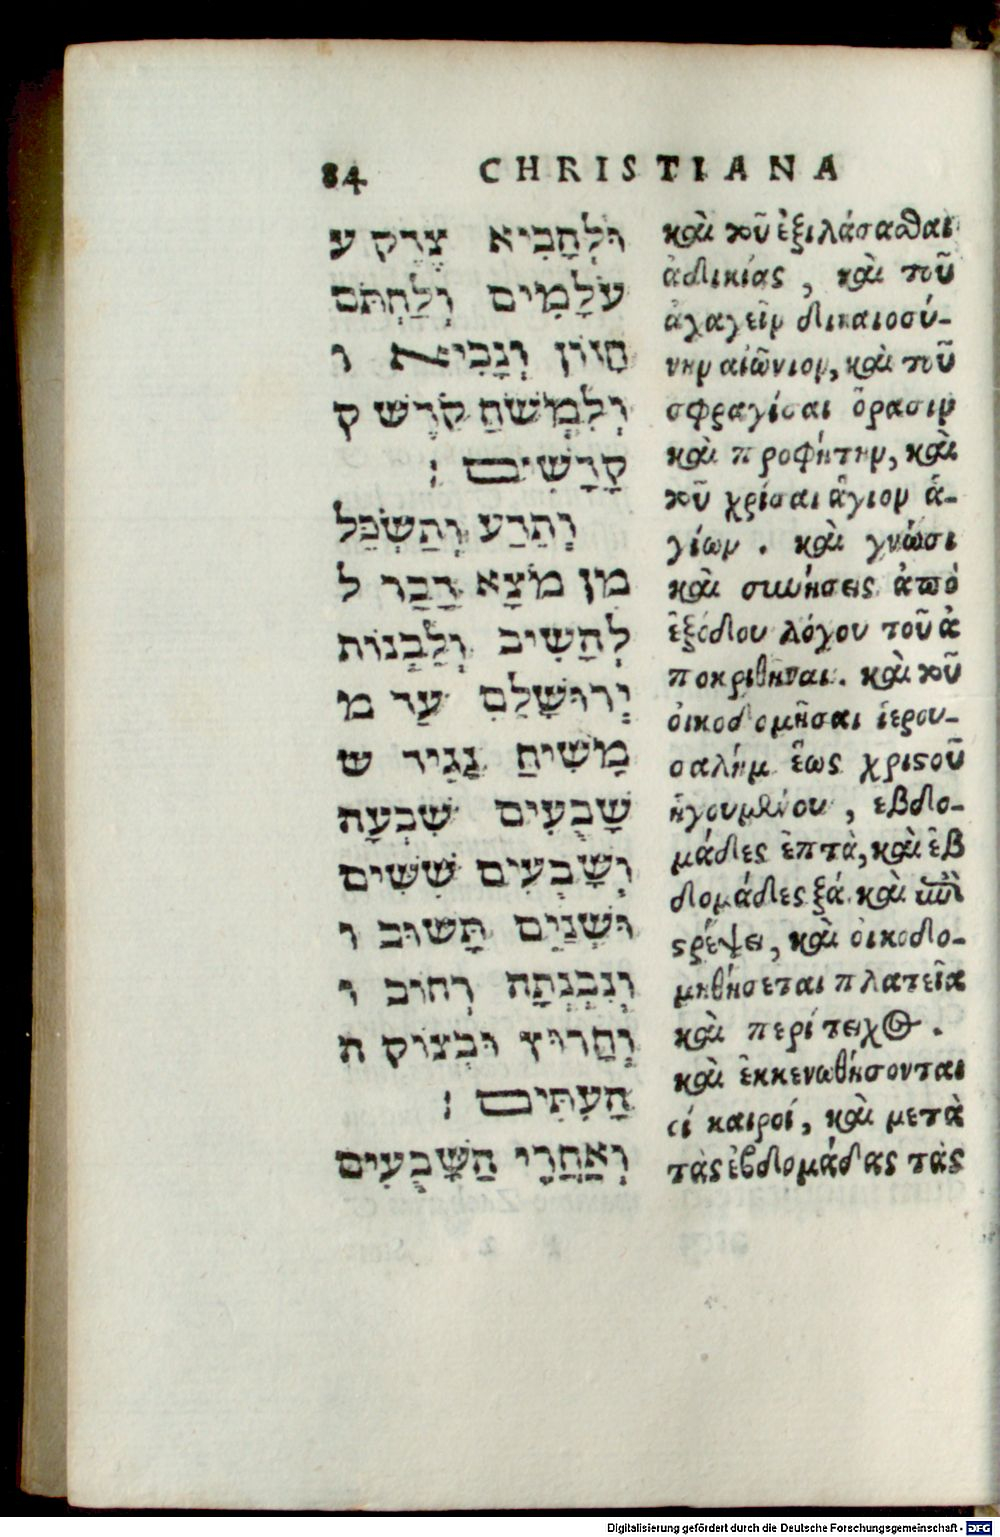 84 CHRISTIANA
וּלְהָבִיא צֶדֶק ע
עֹלָמִים וְלַחְתֹּם
חָזוֹן וְנָבִיא ו
וְלִמְשֹׁחַ קֹדֶשׁ ק
קָדָשִׁים :
וְתֵדַע וְתַשְׂכֵּל
מִן מֹצָא דָבָר ל
לְהָשִׁיב וְלִבְנוֹת
יְרוּשָׁלִַם עַד מ
מָשִׁיחַ נָגִיד ש
שָׁבֻעִים שִׁבְעָה
וְשָׁבֻעִים שִׁשִּׁים
וּשְׁנַיִם תָּשׁוּב ו
וְנִבְנְתָה רְחוֹב ו
וְחָרוּץ וּבְצוֹק ה
הָעִתִּים :
וְאַחֲרֵי הַשָּׁבֻעִים
καὶ τοῦ ἐξιλάσασθαι
ἀδικίας, καὶ τοῦ
ἀγαγεῖν δικαιοσύ-
νην αἰῶνιον, καὶ τοῦ
σφραγίσαι ὅρασιν
καὶ προφήτην, καὶ
τοῦ χρίσαι ἅγιον ἁ-
γίων . καὶ γνώσι
καὶ συνήσεις ἀπὸ
ἐξόδου λόγου τοῦ ἀ
ποκριθῆναι. καὶ τοῦ
οἰκοδομῆσαι ἱερου-
σαλήμ ἕως χριστοῦ
ἡγουμένου, εβδο-
μάδες ἑπτὰ, καὶ ἑβ
δομάδες ξά. καὶ ἐπι
στρέψει, καὶ οἰκοδο-
μηθήσεται πλατεῖα
καὶ περίτειχος .
καὶ ἐκκενωθήσονται
οἱ καιροί, καὶ μετὰ
τὰς ἑβδομάδας τὰς
Digitalisierung gefördert durch die Deutsche Forschungsgemeinschaft - DFG